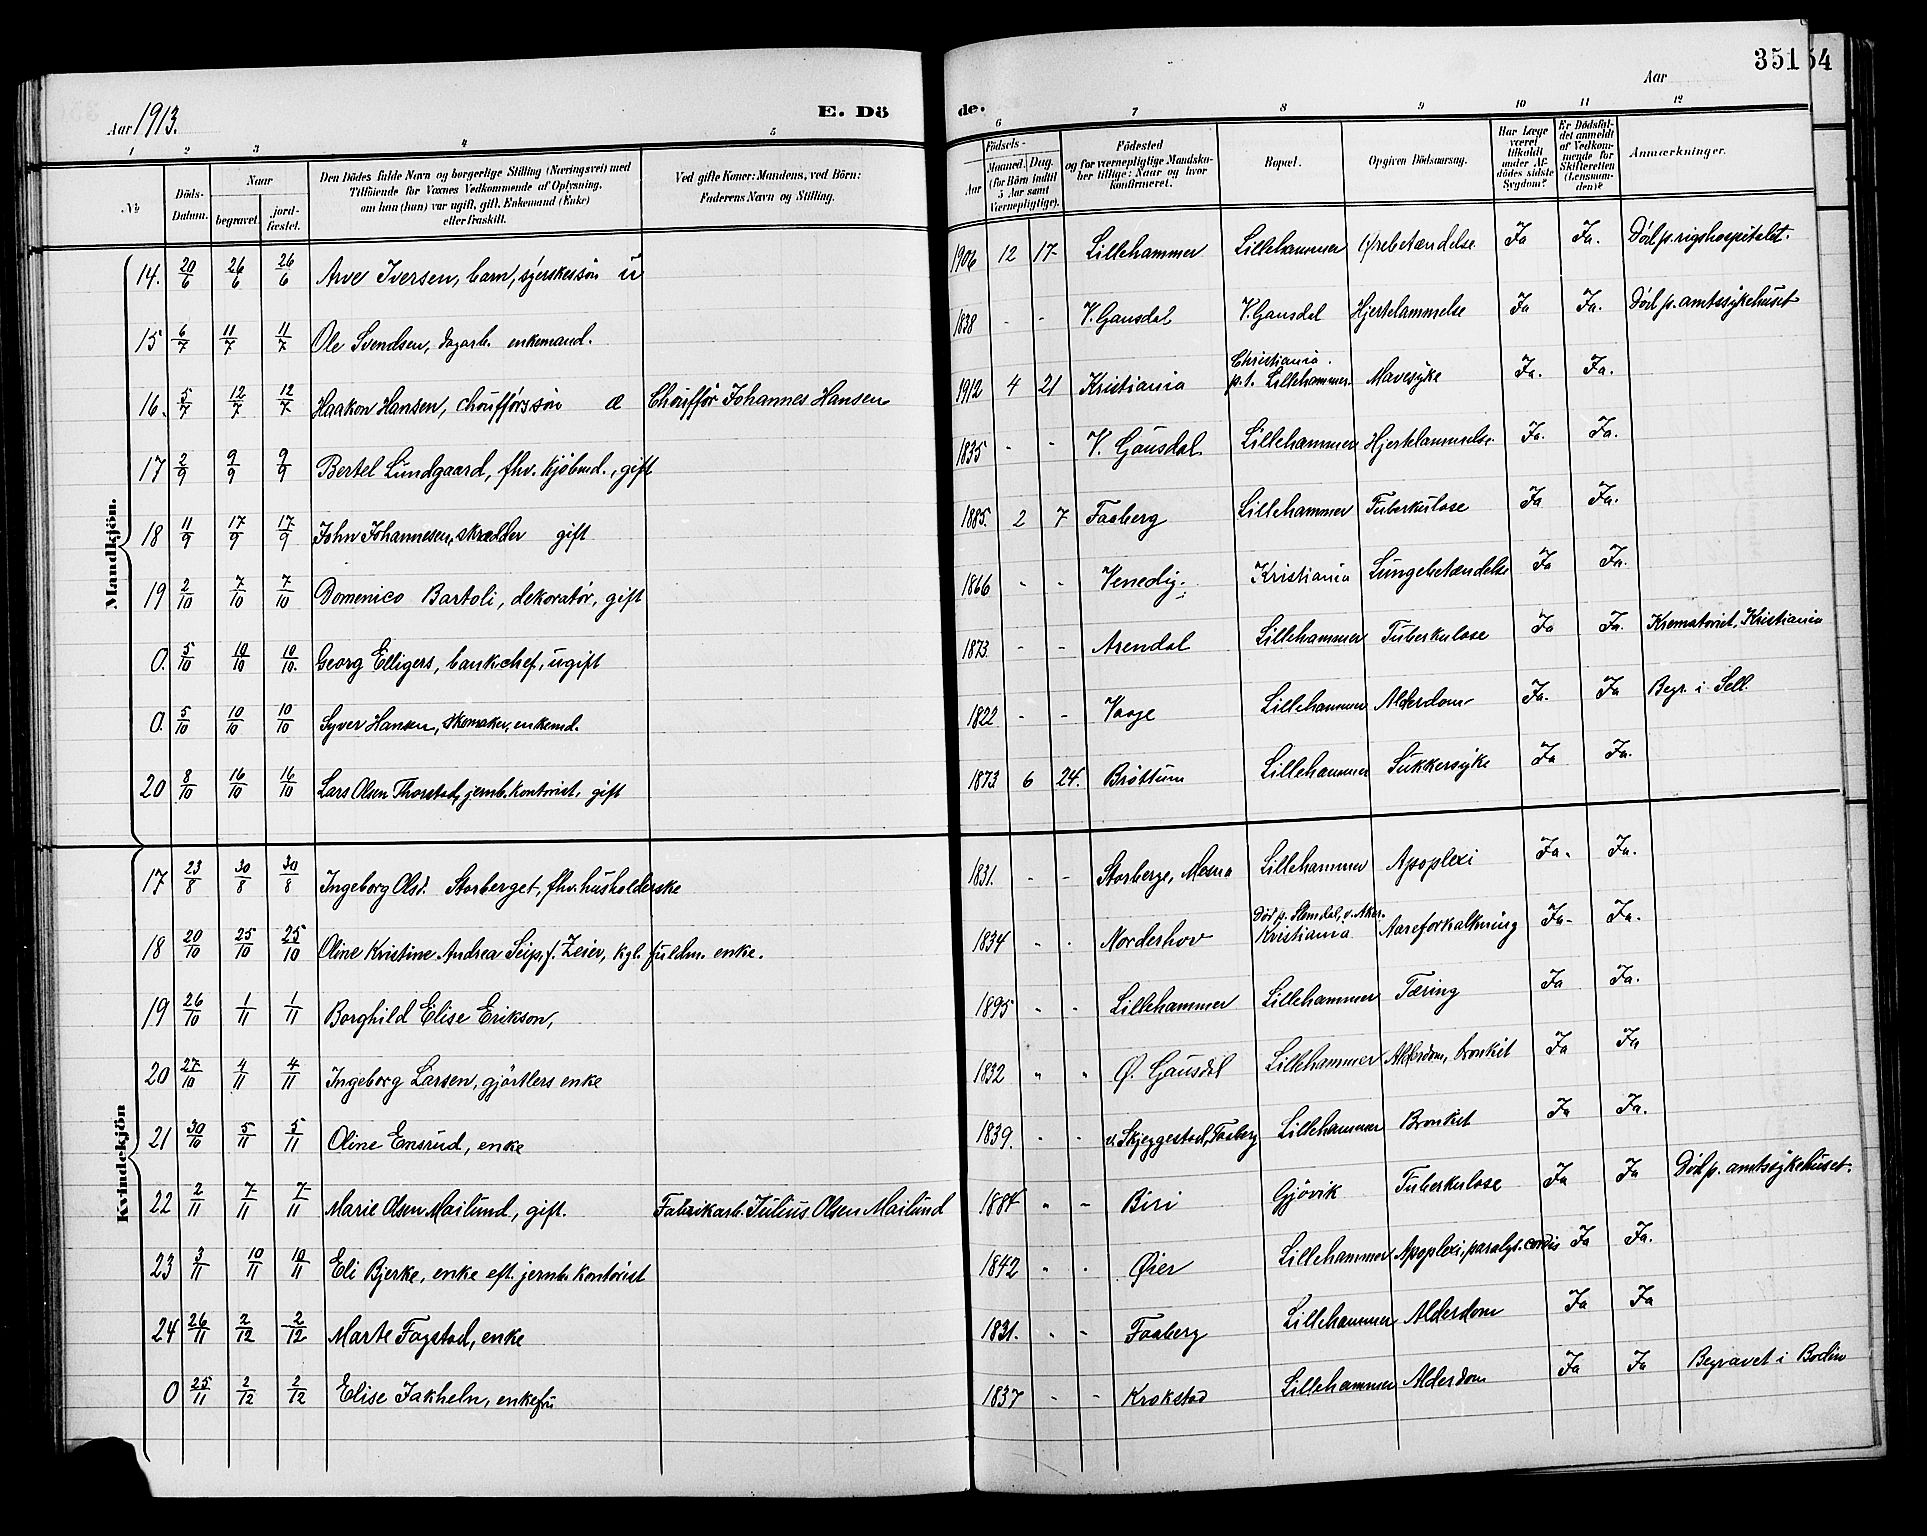 351
54
Aar 1913.
E. Dö
de.
Aar
1 2 3 4 5 6 7 8 9 10 11 12
№
Döds-Datum.
Naar
begravet.
jord-fæstet.
Den Dödes fulde Navn og borgerlige Stilling (Næringsvei) med
Tilföiende for Voxnes Vedkommende af Oplysning,
om han (hun) var ugift, gift, Enkemand (Enke)
eller fraskilt.
Ved gifte Koner: Mandens, ved Börn:
Faderens Navn og Stilling.
Födsels-
Aar
Maaned. Dag.
(for Börn indtil
5 Aar samt
Værnepligtige).
Födested
og for værnepligtige Mandska-
ber tillige: Naar og hvor
konfirmeret.
Bopæl.
Opgiven Dödsaarsag.
Har Læge
været
tilkaldt
under Af-
dödes sidste
Sygdom?
Er Dödsfal-
det anmeldt
af Vedkom-
mende for
Skifteretten
(Lensman-
den)?
Anmærkninger.
Mandkjön.
14. 20/6 26/6 26/6 Arve Iversen, barn, syerskes søn u 1906 12 17 Lillehammer Lillehammer Ørebetændelse Ja Ja. Død p. rigshospitalet.
15 6/7 11/7 11/7 Ole Svendsen, dagarb. enkemand. 1838 - - V. Gausdal V. Gausdal Hjertelammelse Ja Ja. Død p. amtssykehuset
16. 5/7 12/7 12/7 Haakon Hansen, choufførs søn æ Chouffør Johannes Hansen 1912 4 21 Kristiania Christiania. p.t. Lillehammer. Mavesyke Ja. Ja.
17 2/9 9/9 9/9 Bertel Lundgaard, fhv. kjøbmd., gift 1835 - - V. Gausdal Lillehammer Hjertelammelse Ja. Ja.
18 11/9 17/9 17/9 John Johannesen, skrædder gift 1885. 2 7 Faaberg Lillehammer Tuberkulose Ja Ja.
19 2/10 7/10 7/10 Domenico Bartoli, dekoratør, gift 1866 - - Venedig. Kristiania Lungebetændelse Ja Ja.
0. 5/10 10/10 10/10. Georg Elligers, bankchef, ugift 1873. - - Arendal Lillehammer Tuberkulose Ja Ja. Krematoriet, Kristiania
0. 5/10 10/10 10/10 Syver Hansen, skomaker, enkemd. 1822 - - Vaage Lillehammer Alderdom Ja. Ja Begr. i Sell.
20 8/10 16/10 16/10 Lars Olsen Thorstad, jernb. kontorist, gift 1873 6 24. Brøttum Lillehammer Sukkersyke Ja Ja.
Kvindekjön
17 23/8 30/8 30/8 Ingeborg Olsd. Storberget, fhv. husholderske 1831. - - Storberge, Mesna Lillehammer Apoplexi Ja. Ja.
18 20/10 25/10 25/10 Oline Kristine Andrea Seip, f. Zeier, kgl. fuldm. enke. 1834 - - Norderhov Død p. , v. Aker. Kristiania Aareforkalkning Ja- Ja.
19 26/10 1/11 1/11 Borghild Elise Erikson, 1895 - - Lillehammer Lillehammer Tæring Ja Ja.
20 27/10 4/11 4/11 Ingeborg Larsen, gjørtlers enke 1832 " " Ø. Gausdal Lillehammer Alderdom, bronkit Ja Ja
21 30/10 5/11 5/11 Oline Ensrud, enke 1839. - - v. Skjeggestad, Faaberg Lillehammer Bronkit Ja Ja.
22 2/11 7/11 7/11 Marie Olsen Mailund, gift. Fabrikarb. Julius Olsen Mailund 1884 " - Biri Gjøvik Tuberkulose Ja Ja Død p. amtssykehuset.
23 3/11 10/11 10/11 Eli Bjerke, enke eft. jernb. kontorist 1842 " - Øier Lillehammer Apoplexi, paralys. cordis Ja Ja.
24 26/11 2/12 2/12 Marte Fagstad, enke 1831. - - Faaberg Lillehammer Alderdom Ja Ja
0 25/11 2/12 2/12 Elise Jakheln, enkefru 1837 - - Krokstad Lillehammer Alderdom Ja Ja Begravet i Bodin